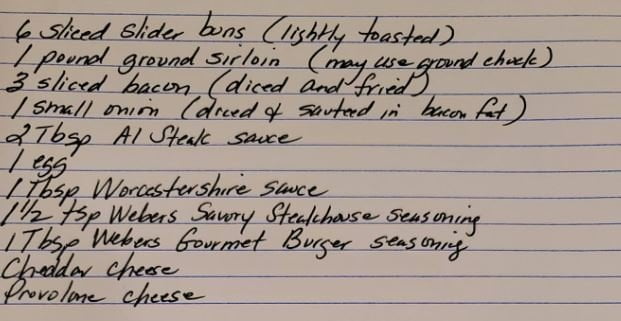 6 sliced slider buns (lightly toasted)
1 pound ground sirloin (may use ground chuck)
3 sliced bacon (diced and fried)
1 small onion (diced & sauteed in bacon fat)
2 Tbsp A1 Steak sauce
1 egg
1 Tbsp Worcestershire sauce
1 1/2 tsp Webers Savory Steakhouse seasoning
1 Tbsp Webers Gourmet Burger seasoning
Cheddar cheese
Provolone cheese